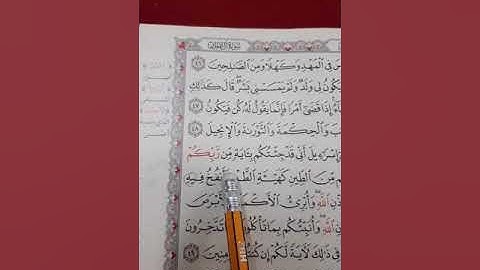 سُورَةُ آلِ عِمْرَانَ
فِى ٱلْمَهْدِ وَكَهْلًا وَمِنَ ٱلصَّٰلِحِينَ ٤٦
يَكُونُ لِى وَلَدٌ وَلَمْ يَمْسَسْنِى بَشَرٌ قَالَ كَذَٰلِكِ
إِذَا قَضَىٰٓ أَمْرًا فَإِنَّمَا يَقُولُ لَهُۥ كُن فَيَكُونُ ٤٧
وَٱلْحِكْمَةَ وَٱلتَّوْرَىٰةَ وَٱلْإِنجِيلَ ٤٨
إِسْرَٰٓءِيلَ أَنِّى قَدْ جِئْتُكُم بِـَٔايَةٍ مِّن رَّبِّكُمْ
مِّنَ ٱلطِّينِ كَهَيْـَٔةِ ٱلطَّيْرِ فَأَنفُخُ فِيهِ
ٱللَّهِ وَأُبْرِئُ ٱلْأَكْمَهَ وَٱلْأَبْرَصَ
ٱللَّهِ وَأُنَبِّئُكُم بِمَا تَأْكُلُونَ وَمَا تَدَّخِرُونَ
فِى ذَٰلِكَ لَـَٔايَةً لَّكُمْ إِن كُنتُم مُّؤْمِنِينَ ٤٩